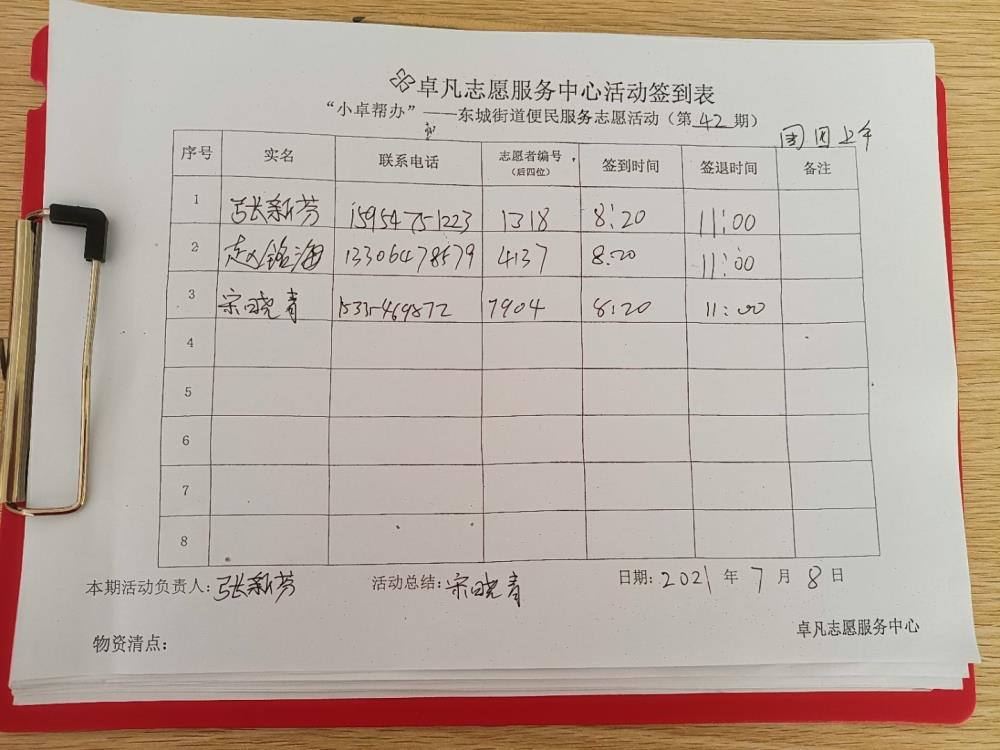 卓凡志愿服务中心活动签到表
“小卓帮办”——东城街道便民服务志愿活动（第42期）
周四上午
序号 实名 联系电话 志愿者编号（后四位） 签到时间 签退时间 备注
1 张新芳 15954751223 1318 8:20 11:00
2 赵铭海 13306478579 4137 8:20 11:00
3 宋晓青 7904 8:20 11:00
4
5
6
7
8
本期活动负责人：张新芳 活动总结：宋晓青 日期：2021年7月8日
卓凡志愿服务中心
物资清点：